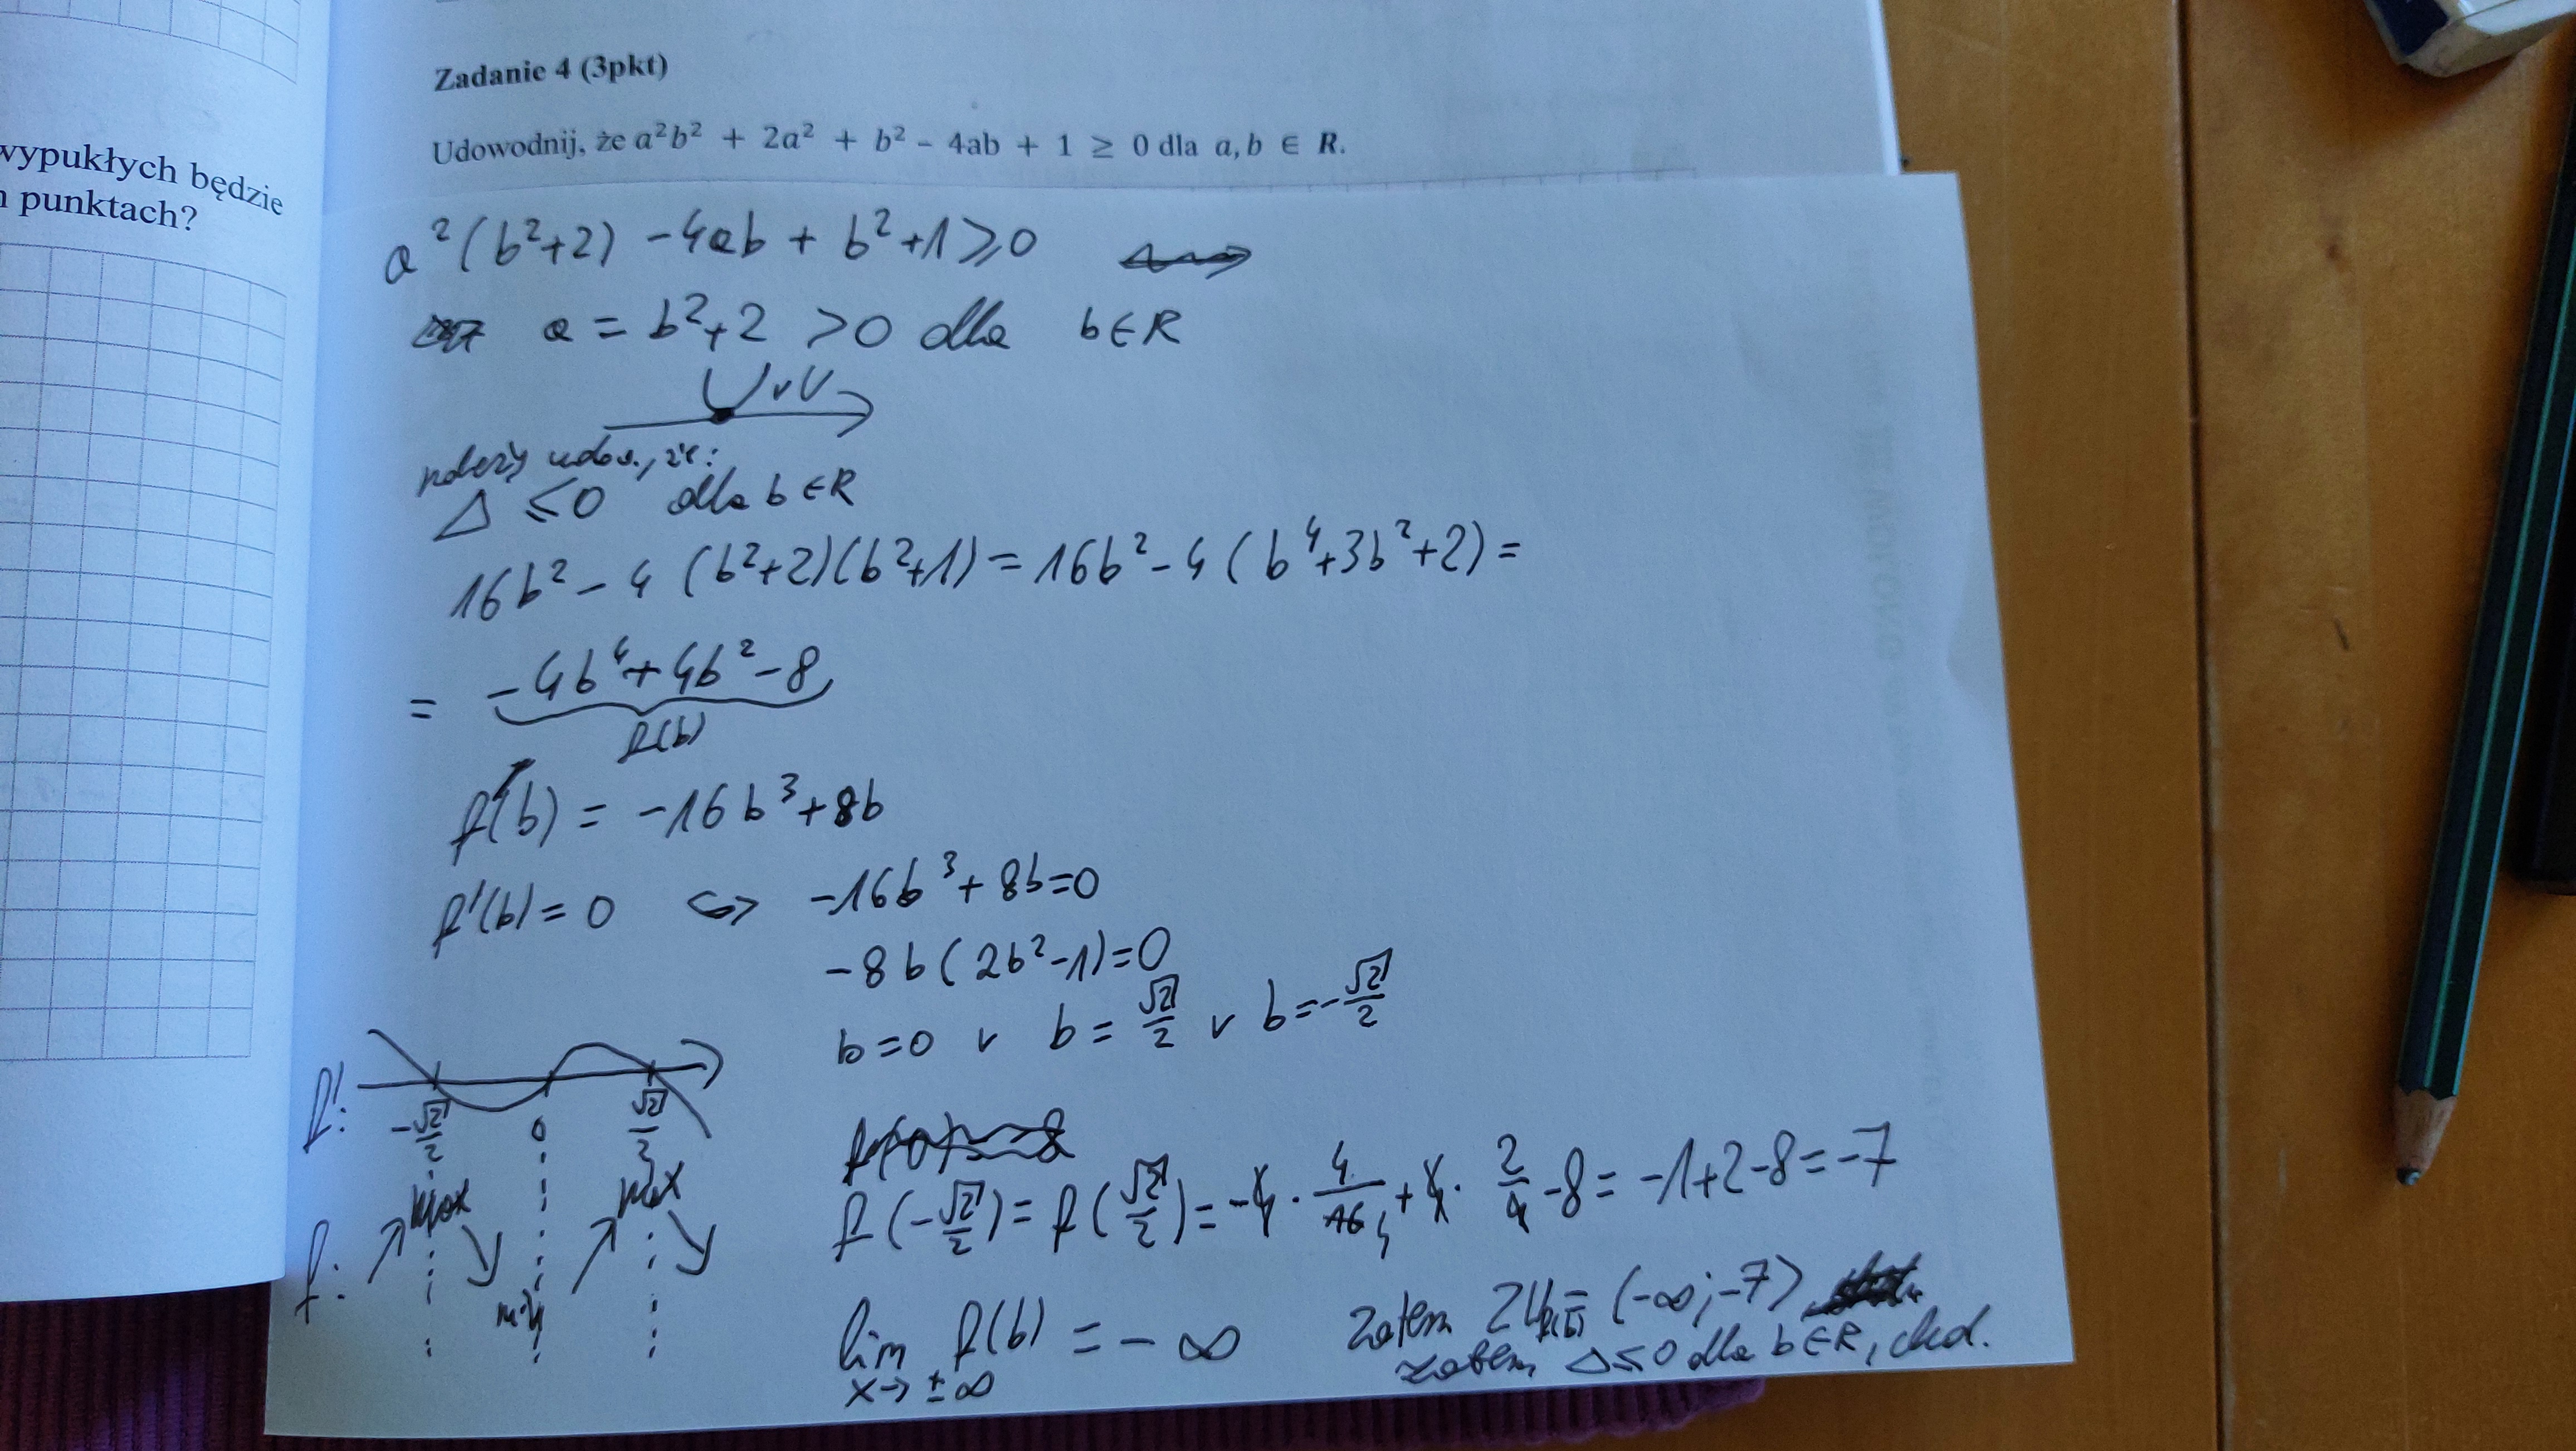 wypukłych będzie
punktach?
Zadanie 4 (3pkt)
Udowodnij, że a²b² + 2a² + b² - 4ab + 1 ≥ 0 dla a, b ∈ R.
a²(b²+2) -4ab + b²+1 ≥ 0
a = b²+2 > 0 dla b∈R
v
należy udow., że:
Δ ≤ 0 dla b∈R
16b² - 4 (b²+2)(b²+1) = 16b² - 4 (b⁴+3b²+2) =
= -4b⁴+4b²-8
f(b)
f'(b) = -16b³+8b
f'(b) = 0 <=> -16b³+8b=0
-8b(2b²-1)=0
b=0 v b = √2/2 v b=-√2/2
f':
-√2/2 0 √2/2
max max
f:
min
f(-√2/2) = f(√2/2) = -4 · 4/16 + 4 · 2/4 -8 = -1+2-8 = -7
lim f(b) = -∞
x→ ±∞
zatem ZWf(b) = (-∞; -7>
zatem Δ≤0 dla b∈R, cnd.